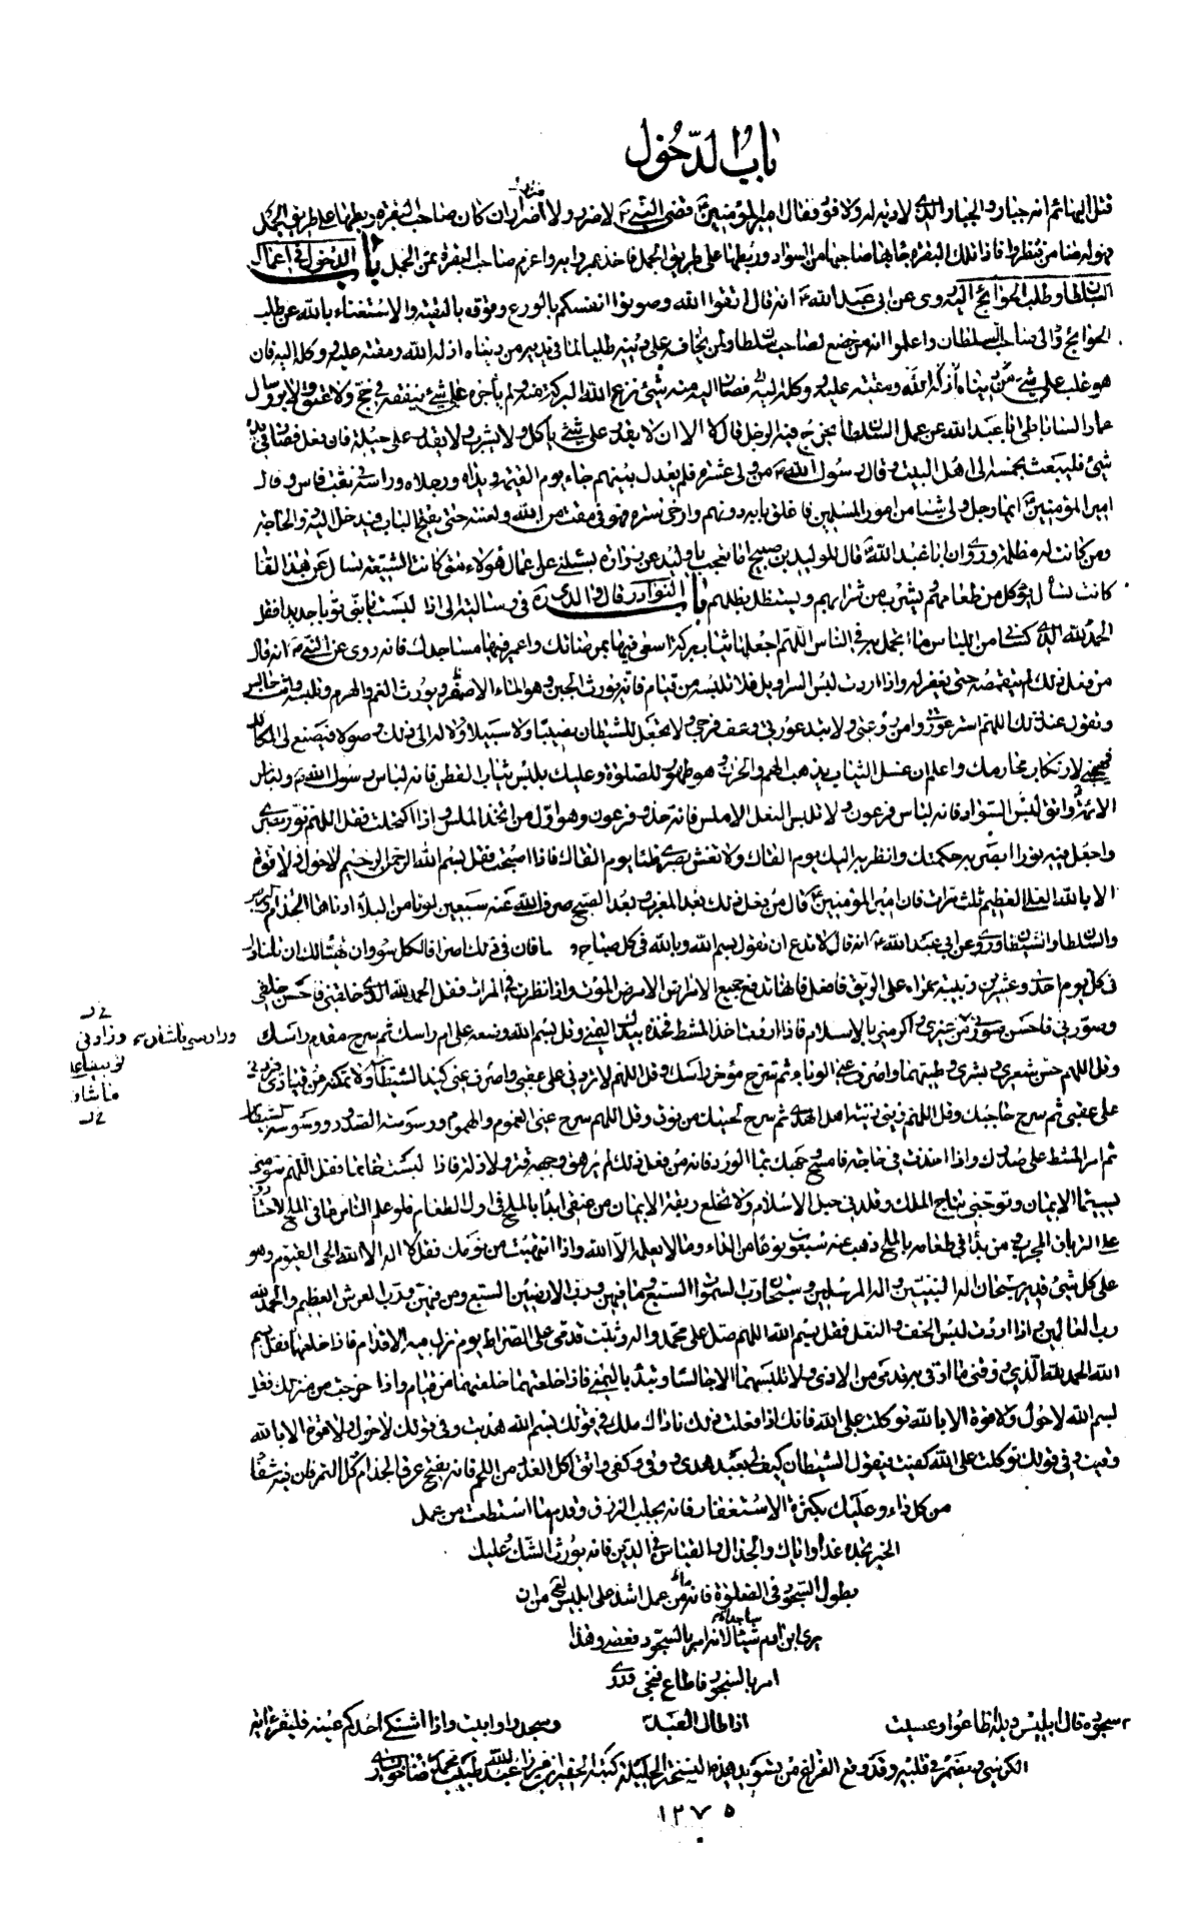 باب الدخول
قتل البهائم انه جبار والجبار الذي لا دية له ولا قود فقال امير المؤمنين قضى النبي لا ضرر ولا اضرار ان كان صاحب البقرة ربطها على طريق الجمل
فهو له ضامن فنظروا فاذا تلك البقرة جاء بها صاحبها من السواد وربطها على طريق الجمل فاخذ عمر برأيه واغرم صاحب البقرة ثمن الجمل باب الدخول في اعمال
السلطان وطلب الحوائج اليه روى عن ابي عبد الله انه قال اتقوا الله وصونوا انفسكم بالورع وقوة بالتقية والاستغناء بالله عن طلب
الحوائج الى صاحب السلطان واعلموا انه من خضع لصاحب سلطان ولمن يخالفه على دينه طلبا لما في يديه من دنياه اذله الله ومقته عليه ووكله اليه فان
هو غلب على شئ من دنياه فصار اليه منه شئ نزع الله البركة منه ولم يأجره على شئ ينفقه في حج ولا عتق ولا بر وسأل
عمار الساباطي ابا عبد الله عن عمل السلطان يخرج فيه الرجل قال لا الا ان لا يقدر على شئ يأكل ولا يشرب ولا يقدر على حيلة فان فعل فصار في يده
شئ فليبعث بخمسه الى اهل البيت وقال رسول الله من ولي عشرة فلم يعدل بينهم جاء يوم القيمة ويداه ورجلاه وراسه في ثقب فاس وقال
امير المؤمنين ايما رجل ولي شيئا من امور المسلمين فاغلق بابه دونهم وارخى ستره فهو في مقت من الله ولعنته حتى يفتح الباب فيدخل اليه ذو الحاجة
ومن كانت له مظلمة وروى ان ابا عبد الله قال للوليد بن صبيح اما تعجب يا وليد من زرارة يسئلني عن اعمال هؤلاء متى كانت الشيعة تسأل عن هذا انما
كانت تسأل يؤكل من طعامهم ويشرب من شرابهم ويستظل بظلهم باب النوادر قال والدي ره في رسالته الى اذا لبست ثوبا جديدا فقل
الحمد لله الذي كساني من اللباس ما اتجمل به في الناس اللهم اجعلها ثياب بركة اسعى فيها بمرضاتك واعمر فيها مساجدك فانه روى عن النبي انه قال
من فعل ذلك لم يتقمصه حتى يغفر له واذا اردت لبس السراويل فلا تلبسه من قيام فانه يورث الجبن وهو الماء الاصفر ويورث الغم والهرم وتلبسه وانت جالس
وتقول عند ذلك اللهم استر عورتي وامن روعتي ولا تبد عورتي وعف فرجي ولا تجعل للشيطان نصيبا ولا سبيلا ولا له الى ذلك وصولا فيصنع لي المكائد
فيهيجني لارتكاب محارمك واعلم ان غسل الثياب يذهب الهم والحزن وهو طهور للصلوة وعليك بلبس ثياب القطن فانه لباس رسول الله ولباس
الائمة واتق لبس السواد فانه لباس فرعون ولا تلبس النعل الاملس فانه حذو فرعون وهو اول من اتخذ الملس واذا اكتحلت فقل اللهم نور بصري
واجعل فيه نورا ابصر به حكمتك وانظر به اليك يوم القاك ولا تغش بصري ظلما يوم القاك فاذا اصبحت فقل بسم الله الرحمن الرحيم لا حول ولا قوة
الا بالله العلي العظيم ثلث مرات فان امير المؤمنين قال من فعل ذلك بعد المغرب وبعد الصبح صرف الله عنه سبعين لونا من البلاء ادناها الجذام والبرص
والسلطان والشيطان وروي عن ابي عبد الله انه قال لا تدع ان تقول بسم الله وبالله في كل صباح ومساء فان في ذلك صرفا لكل سوء وان تهيأ لك ان تتناول
في كل يوم احدى وعشرين زبيبة حمراء على الريق فافعل فانها تدفع جميع الامراض الا مرض الموت واذا نظرت في المراة فقل الحمد لله الذي خلقني فاحسن خلقي
وصورني فاحسن صورتي واكرمني بالاسلام فاذا اردت اخذ المشط فخذه بيدك اليمنى وقل بسم الله وضعه على ام راسك ثم سرح مقدم راسك
وقل اللهم حسن شعري وبشري وطيبهما واصرف عني الوباء ثم تسرح مؤخر راسك وقل اللهم لا تردني على عقبي واصرف عني كيد الشيطان ولا تمكنه من قيادي فيردني
على عقبي ثم سرح حاجبك وقل اللهم زيني زينة اهل الهدى ثم سرح لحيتك من فوق وقل اللهم سرح عني الغموم والهموم ووسوسة الصدور ووسوسة الشيطان
ثم امر المشط على صدرك واذا اخذت في حاجة فامسح وجهك بماء الورد فانه من فعل ذلك لم يرهق وجهه قتر ولا ذلة فاذا لبست خاتما فقل اللهم سومني
بسيماء الايمان وتوجني بتاج الملك وقلدني حبل الاسلام ولا تخلع ربقة الايمان من عنقي ابدأ بالملح في اول الطعام فلو علم الناس ما في الملح لاختاروه
على الترياق المجرب ومن بدأ في طعامه بالملح ذهب عنه سبعون نوعا من الداء وما لا يعلمه الا الله واذا انتبهت من نومك فقل لا اله الا الله الحي القيوم وهو
على كل شئ قدير سبحان اله النبيين واله المرسلين وسبحان رب السموات السبع وما فيهن ورب الارضين السبع ومن فيهن ورب العرش العظيم والحمد لله
رب العالمين واذا اردت لبس الخف والنعل فقل بسم الله اللهم صل على محمد واله وثبت قدمي على الصراط يوم تزل فيه الاقدام فاذا خلعتهما فقل بسم
الله الحمد لله الذي رزقني ما اوقي به قدمي من الاذى ولا تلبسهما الا جالسا وتبدأ باليمنى فاذا خلعتهما خلعتهما من قيام واذا خرجت من منزلك فقل
بسم الله لا حول ولا قوة الا بالله توكلت على الله فانك اذا فعلت ذلك ناداك ملك في قولك بسم الله هديت وفي قولك لا حول ولا قوة الا بالله
وقيت وفي قولك توكلت على الله كفيت فيقول الشيطان كيف لي بعبد هدي ووقي وكفي واتق اكل الغدد من اللحم فانه يفتح عرق الجذام وكل التمر فان فيه شفاء
من كل داء وعليك بكثرة الاستغفار فانه يجلب الرزق وقدم ما استطعت من عمل
الخير تجده غدا واياك والجدال والقياس في الدين فانه يورث الشك وعليك
بطول السجود في الصلوة فانه ما من عمل اشد على ابليس من ان
يرى ابن ادم ساجدا لانه امر بالسجود فعصى وهذا
امر بالسجود فاطاع فنجى
سجوده قال ابليس يا ويله اطاعوا وعصيت اذا طال العبد وسجدوا وابيت واذا اشتكى احدكم عينه فليقرء اية
الكرسي ويضمر في قلبه وقد وقع الفراغ من تسويد هذه النسخة الجليلة كتبه الحقير
١٢٧٥